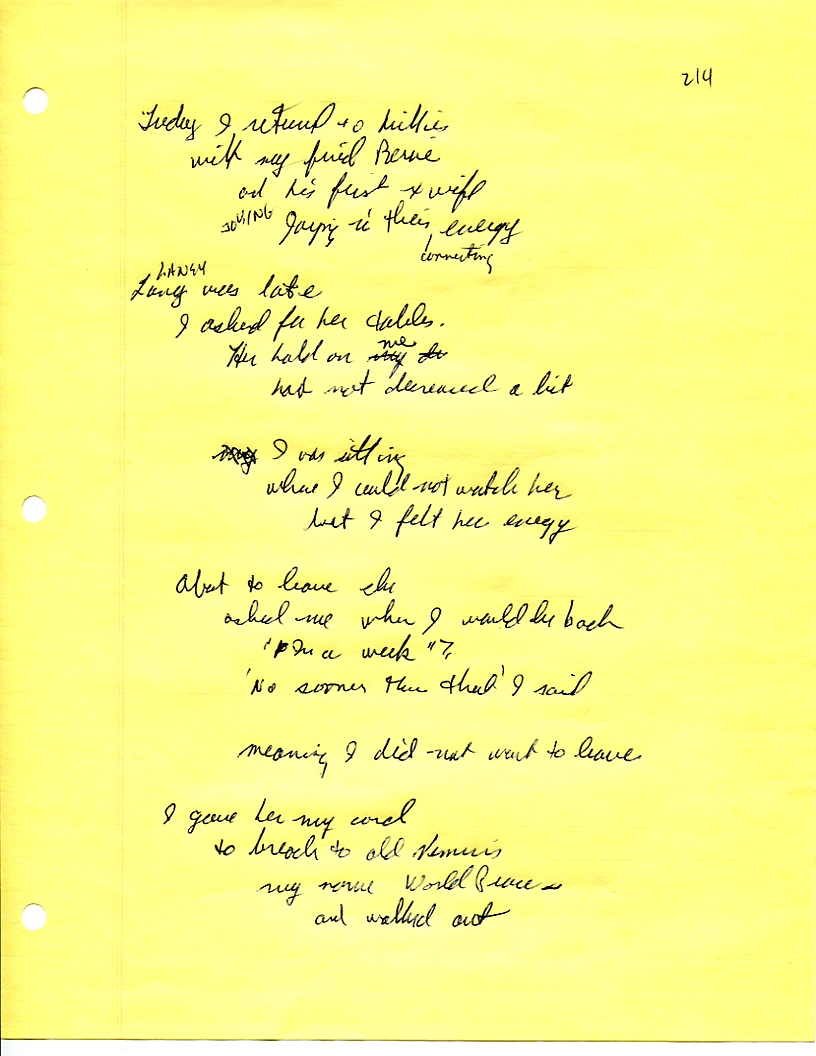 214
Today I return to Millies
with my friend Bernie
and his first x wife
JOYING Joying in their energy
connecting
LANEY
Laney was late
I asked for her tables.
Her hold on me
had not decreased a bit
I was sitting
where I could not watch her
but I felt her energy
About to leave she
asked me when I would be back
"In a week"?
'No sooner than that' I said
meaning I did not want to leave
I gave her my card
to to old
my name World Peace
and walked out